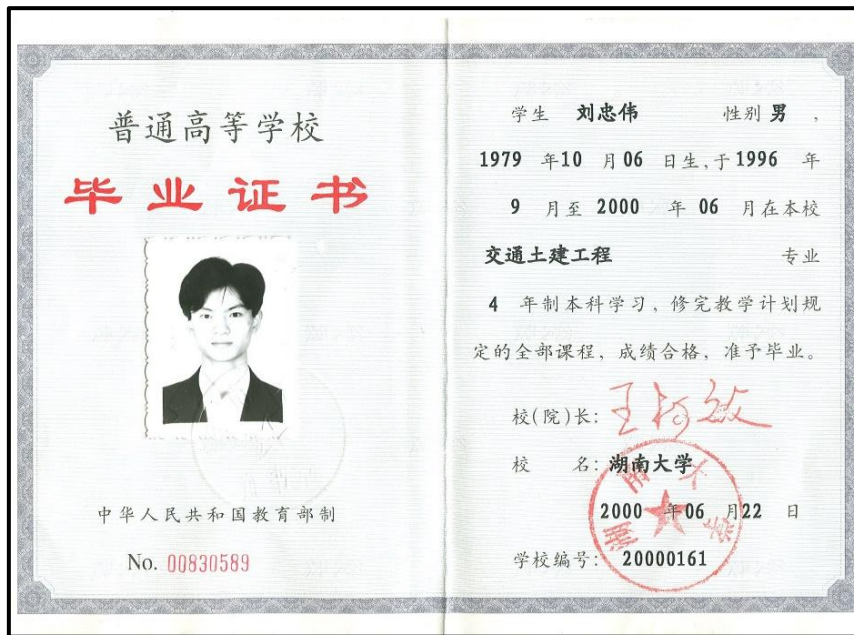 普通高等学校
毕业证书
中华人民共和国教育部制
No. 00830589
学生 刘忠伟 性别 男 ,
1979 年10 月06 日生,于1996 年
9 月至 2000 年 06 月在本校
交通土建工程 专业
4 年制本科学习，修完教学计划规
定的全部课程，成绩合格，准予毕业。
校(院)长: 王柯敏
校 名: 湖南大学
2000 年06 月22 日
学校编号: 20000161
湖南大学